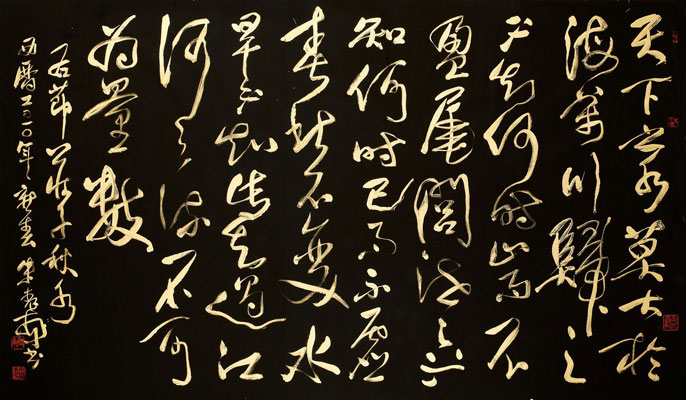 天下之水莫大於
海萬川歸之
不知何時止而不
盈尾閭泄之不
知何時已而不虛
春秋不變水
旱不知此其過江
河之流不可
為量數
右節莊子秋水
西曆二〇一〇年書